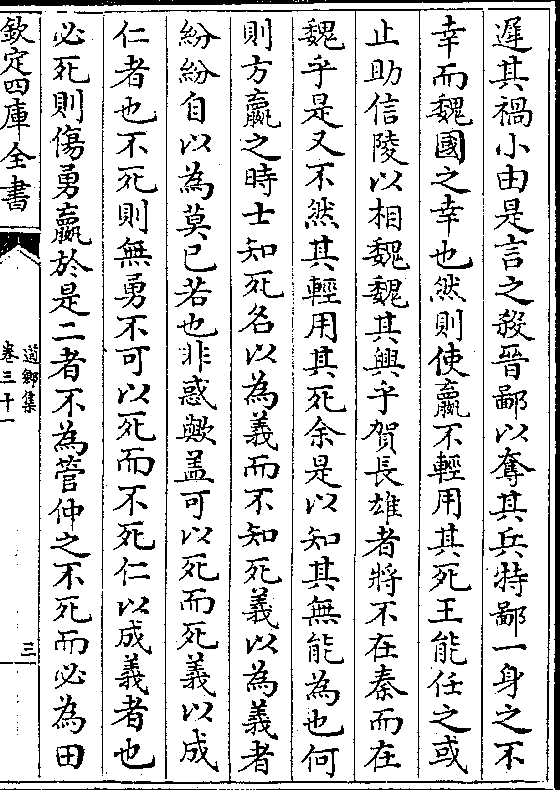 遲其禍小由是言之殺晉鄙以奪其兵特鄙一身之不
幸而魏國之幸也然則使嬴不輕用其死王能任之或
止助信陵以相魏魏其興乎賀長雄者將不在秦而在
魏乎是又不然其輕用其死余是以知其無能為也何
則方嬴之時士知死名以為義而不知死義以為義者
紛紛自以為莫已若也非惑歟盖可以死而死義以成
仁者也不死則無勇不可以死而不死仁以成義者也
必死則傷勇嬴於是二者不為管仲之不死而必為田
欽定四庫全書
道鄉集
卷三十一
三